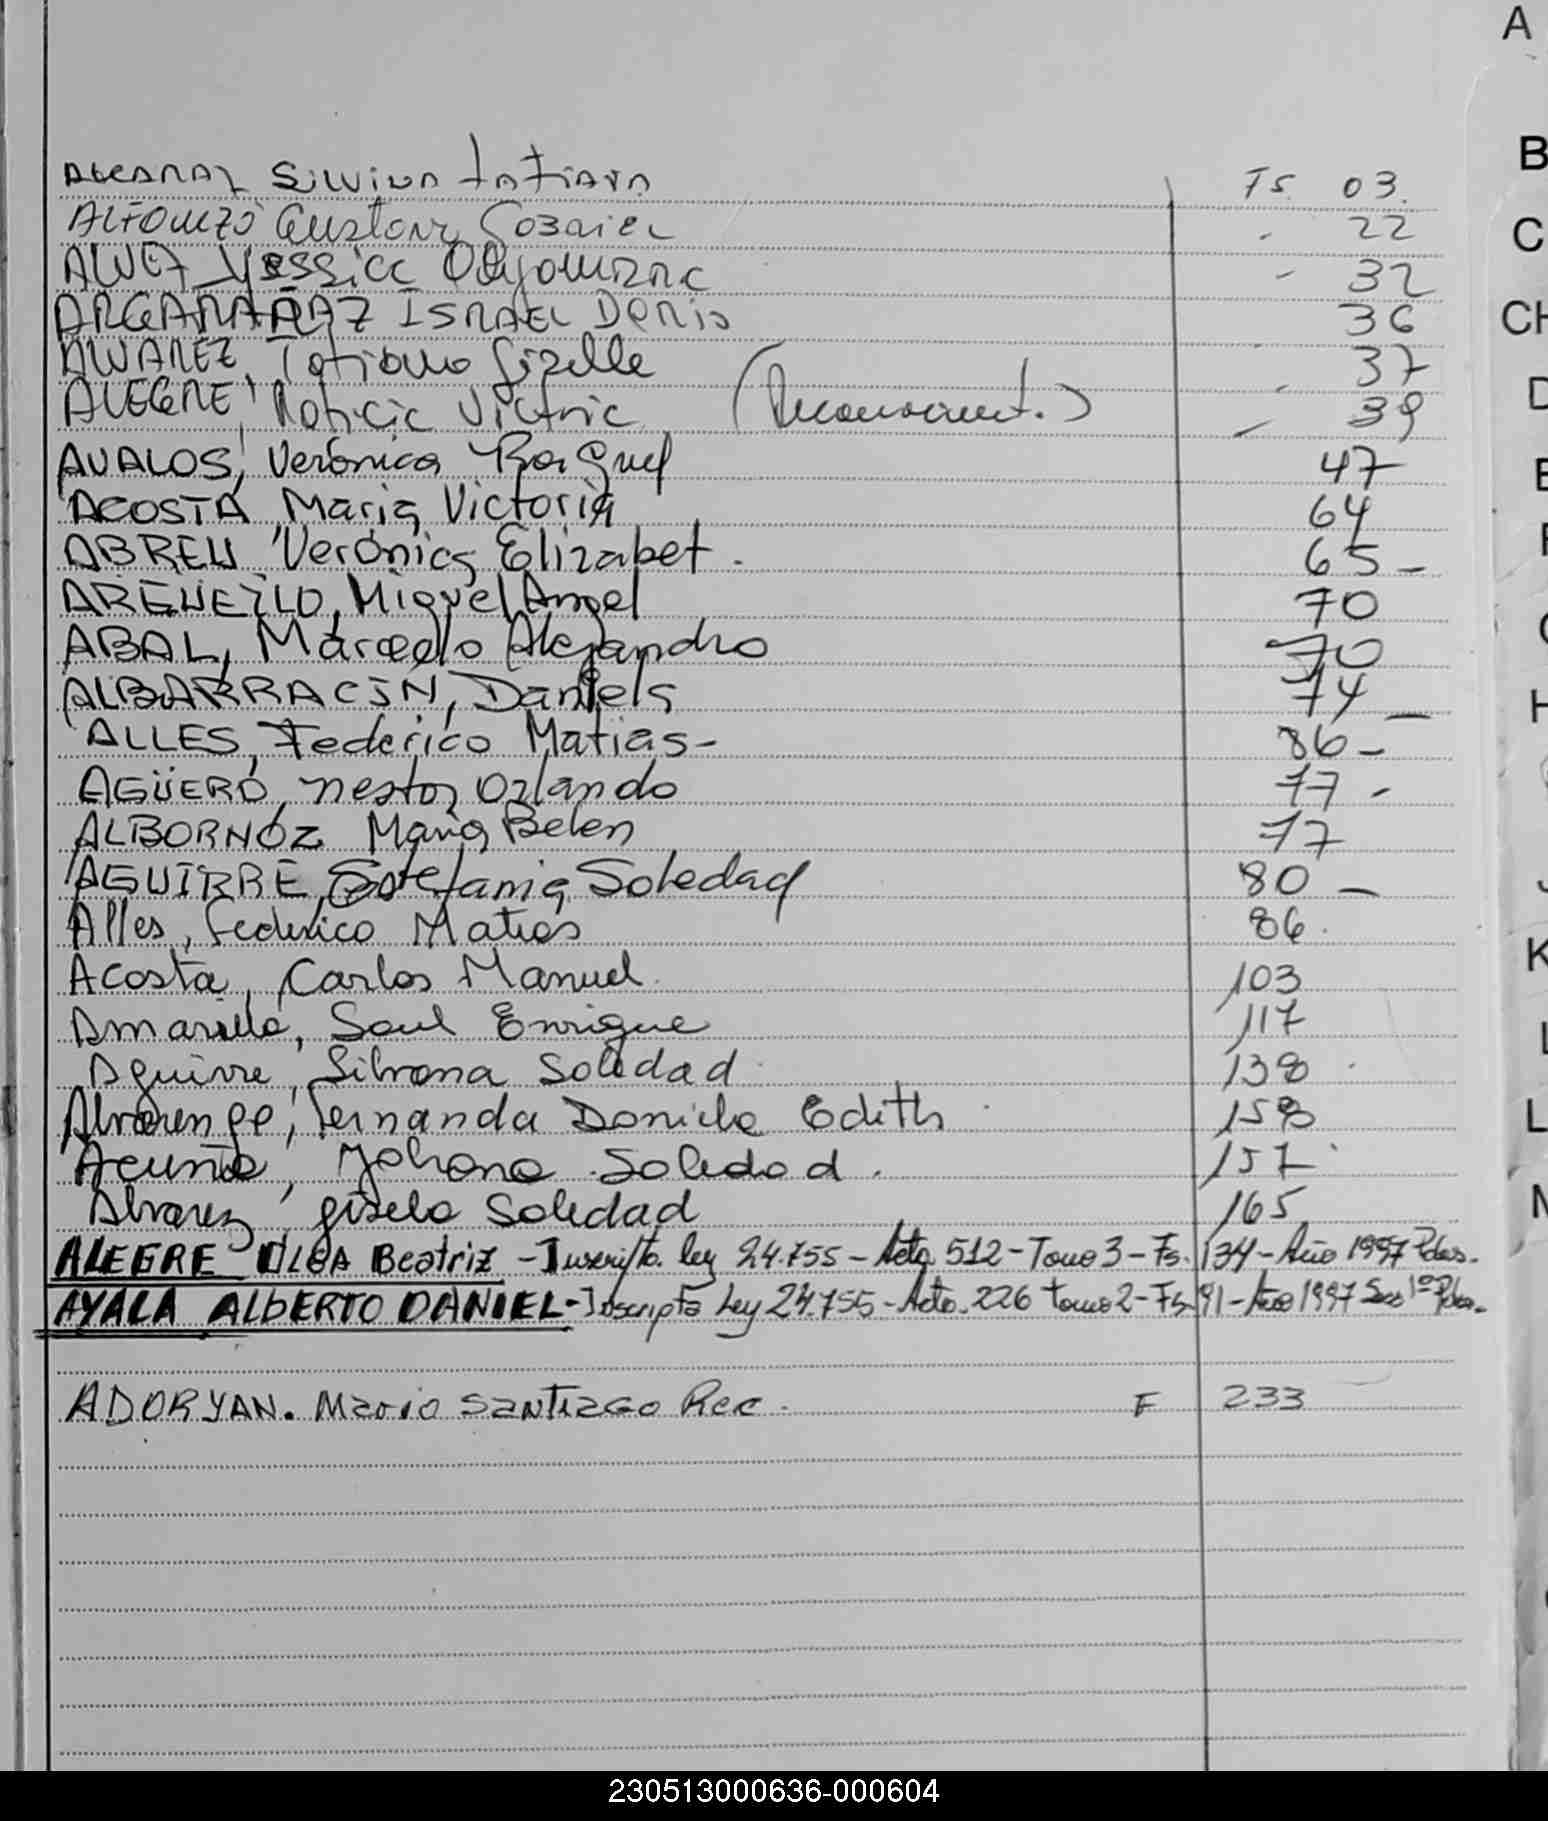 ALCARAZ Silvina Tatiana Fs. 03.
ALFONZO Gustavo Gabriel - 22
ALVEZ Yessica - 32
ARGAÑARAZ ISRAEL DENIS 36
ALVAREZ, Tatiana Giselle 37
ALEGRE, Patricia - 39
AVALOS, Verónica Raquel 47
ACOSTA, Maria Victoria 64
ABREU, Verónica Elizabet. 65-
ARGUELLO, Miguel Angel 70
ABAL, Marcelo Alejandro 70
ALBARRACIN, Daniela 74 -
ALLES, Federico Matias- 86-
AGÜERO, Nestor Orlando 77 -
ALBORNOZ Maria Belen 77
AGUIRRE, Estefania Soledad 80 -
Alles, Federico Matias 86.
Acosta, Carlos Manuel. 103
Amarilla, Saul Enrique 117
Aguirre, Silvana Soledad. 138
Alvarenga, Fernanda Daniela Edith 158
Acuña, Johana Soledad. 157
Alvarez, gisela Soledad 165
ALEGRE OLGA Beatriz - Inscripta. ley 24.755 - Acta 512 - Tomo 3 - Fs. 134 - Año 1997 Pdas.
AYALA ALBERTO DANIEL - Inscripta Ley 24.755 - Acta. 226 tomo 2 - Fs. 91 - Año 1997 Secc 1º Pdas.
ADORYAN. Mario Santiago Rec. F 233
A
B
C
CH
D
E
F
H
J
K
L
L
M
230513000636-000604